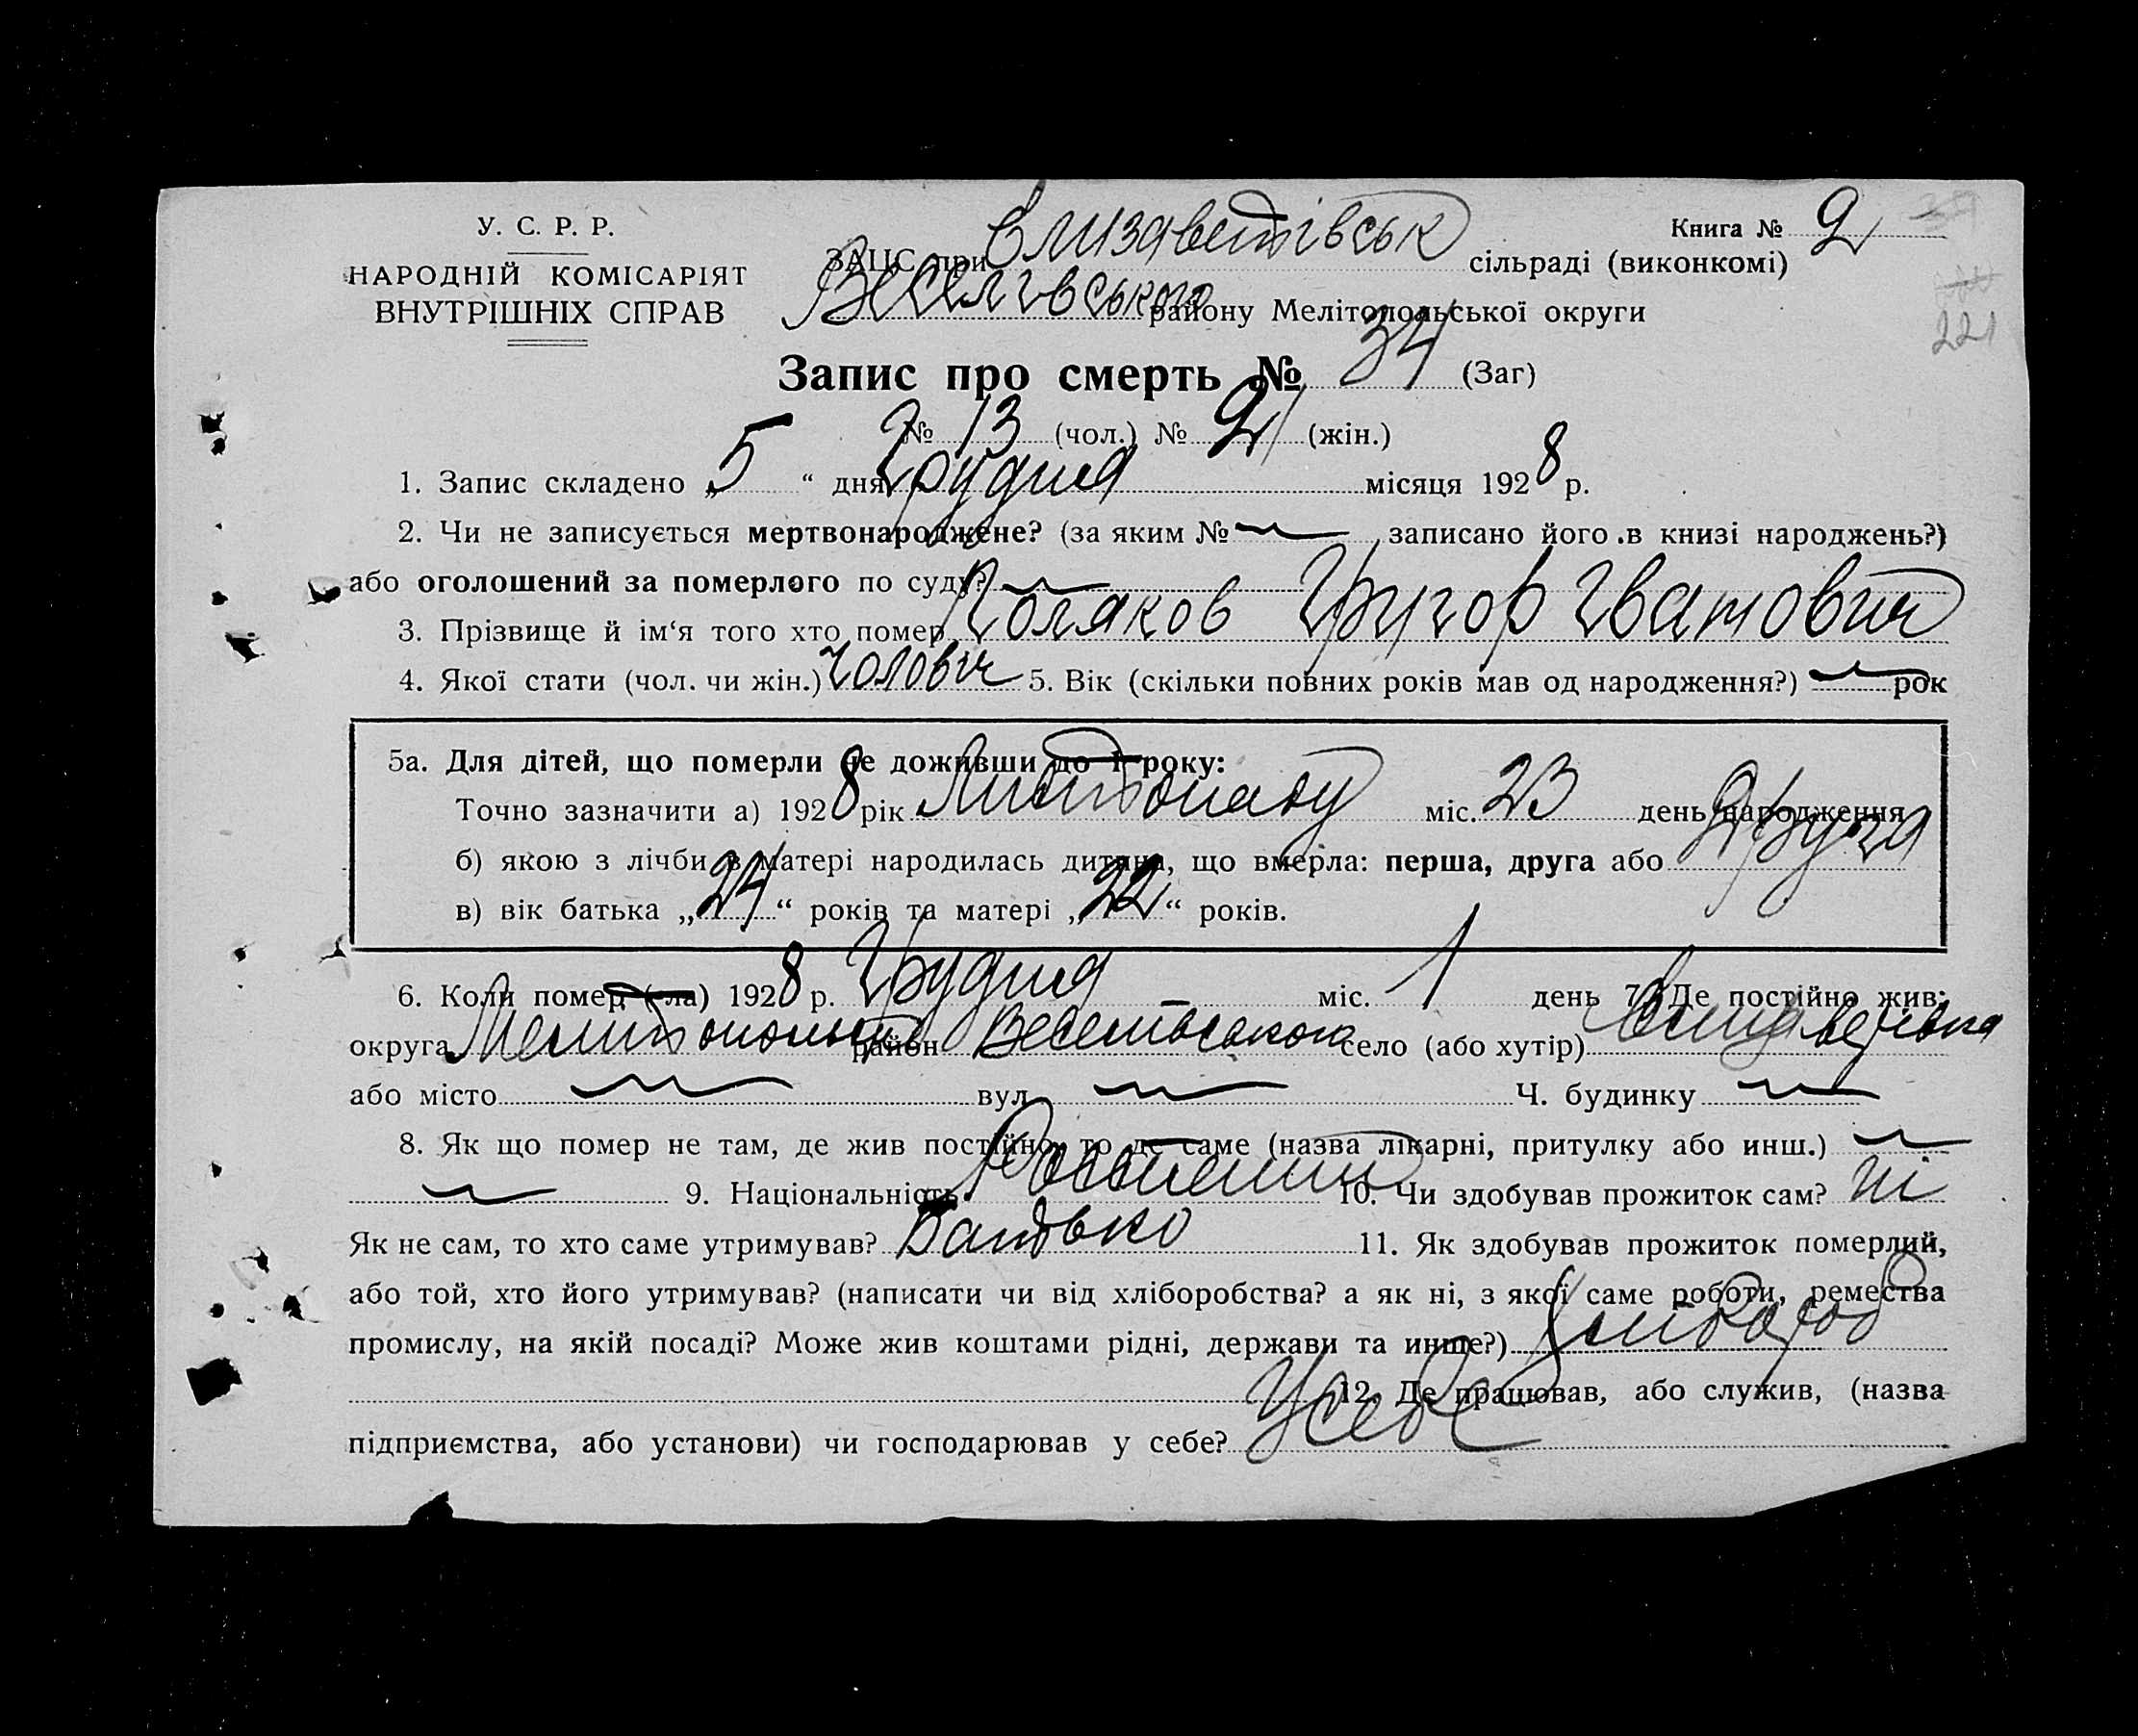 У. С. Р. Р.
НАРОДНІЙ КОМІСАРІЯТ
ВНУТРІШНІХ СПРАВ
Книга № 2
ЗАЦС при Єлизаветівськ сільраді (виконкомі)
Веселівського району Мелітопольської округи
221
Запис про смерть № 34 (Заг)
№ 13 (чол.) № 21 (жін.)
1. Запис складено „ 5 “ дня Грудня місяця 1928 р.
2. Чи не записується мертвонароджене? (за яким № записано його в книзі народжень?)
або оголошений за померлого по суду?
3. Прізвище й ім‘я того хто помер Поляков Григор Іванович
4. Якої стати (чол. чи жін.) чолович 5. Вік (скільки повних років мав од народження?) рок
5а. Для дітей, що померли не доживши до 1 року:
Точно зазначити а) 1928 рік Листопаду міс. 23 день народження
б) якою з лічби в матері народилась дитина, що вмерла: перша, друга або друга
в) вік батька „ 24 “ років та матері „ 22 “ років.
6. Коли помер (-ла) 1928 р. Грудня міс. 1 день 7. Де постійно жив:
округа район село (або хутір)
або місто вул Ч. будинку
8. Як що помер не там, де жив постійно, то де саме (назва лікарні, притулку або инш.)
9. Національність 10. Чи здобував прожиток сам? ні
Як не сам, то хто саме утримував? Батько 11. Як здобував прожиток померлий,
або той, хто його утримував? (написати чи від хліборобства? а як ні, з якої саме роботи, ремества
промислу, на якій посаді? Може жив коштами рідні, держави та инше?)
12. Де працював, або служив, (назва
підприємства, або установи) чи господарював у себе? У себе